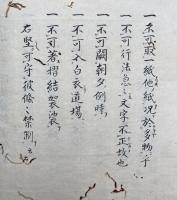 一不可取一紙他紙況於多物乎
一不可行法急々文字不正故也
一不可闕朝夕例時
一不可入白衣道場
一不可著摺結袈裟
右堅可守彼條々禁制